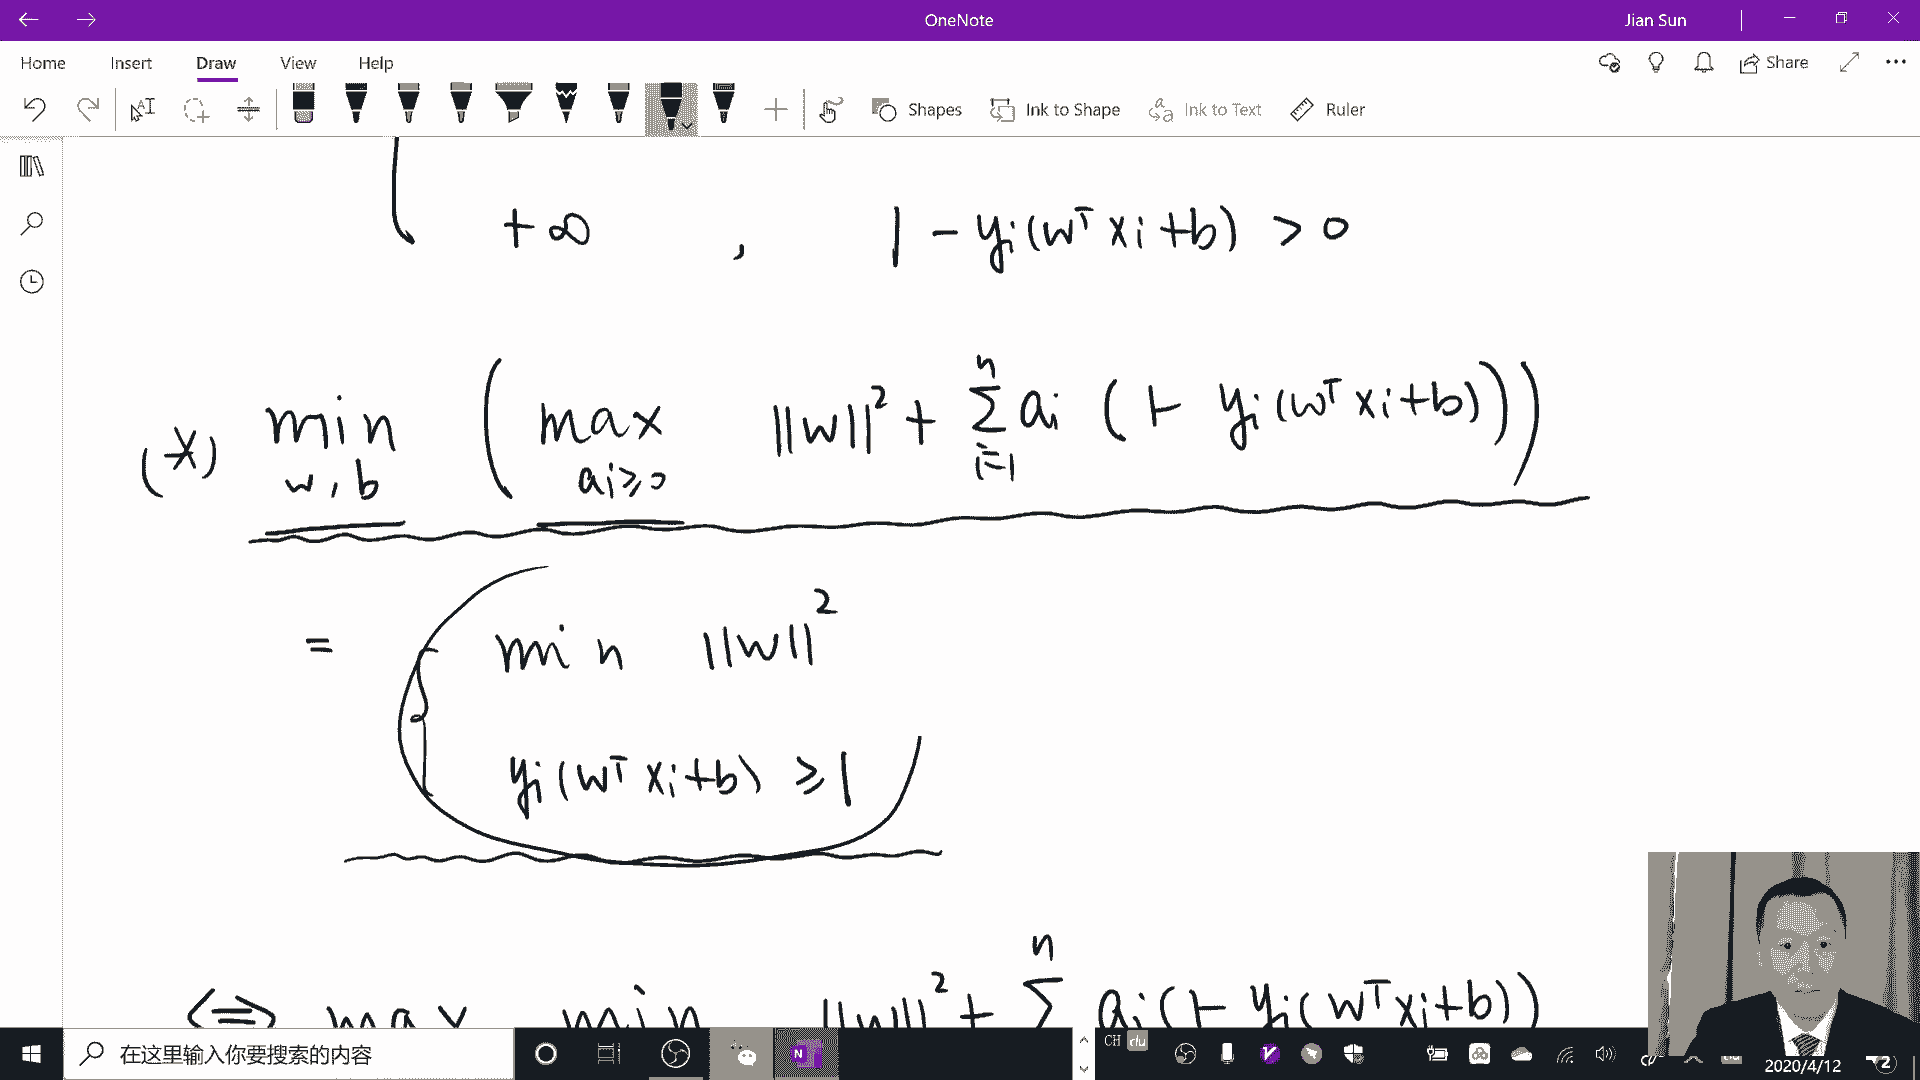 OneNote
Jian Sun
Home Insert Draw View Help
Share
Shapes Ink to Shape Ink to Text Ruler
+∞ , 1 - yi(wᵀxi+b) > 0
(*) min ( max ||w||² + Σ ai (1- yi(wᵀxi+b)))
w,b ai≥0 n i=1
= min ||w||²
yi(wᵀxi+b) ≥1
n
⟺ max min ||w||² + Σ ai(1- yi(wᵀxi+b))
在这里输入你要搜索的内容
CH
2020/4/12
2